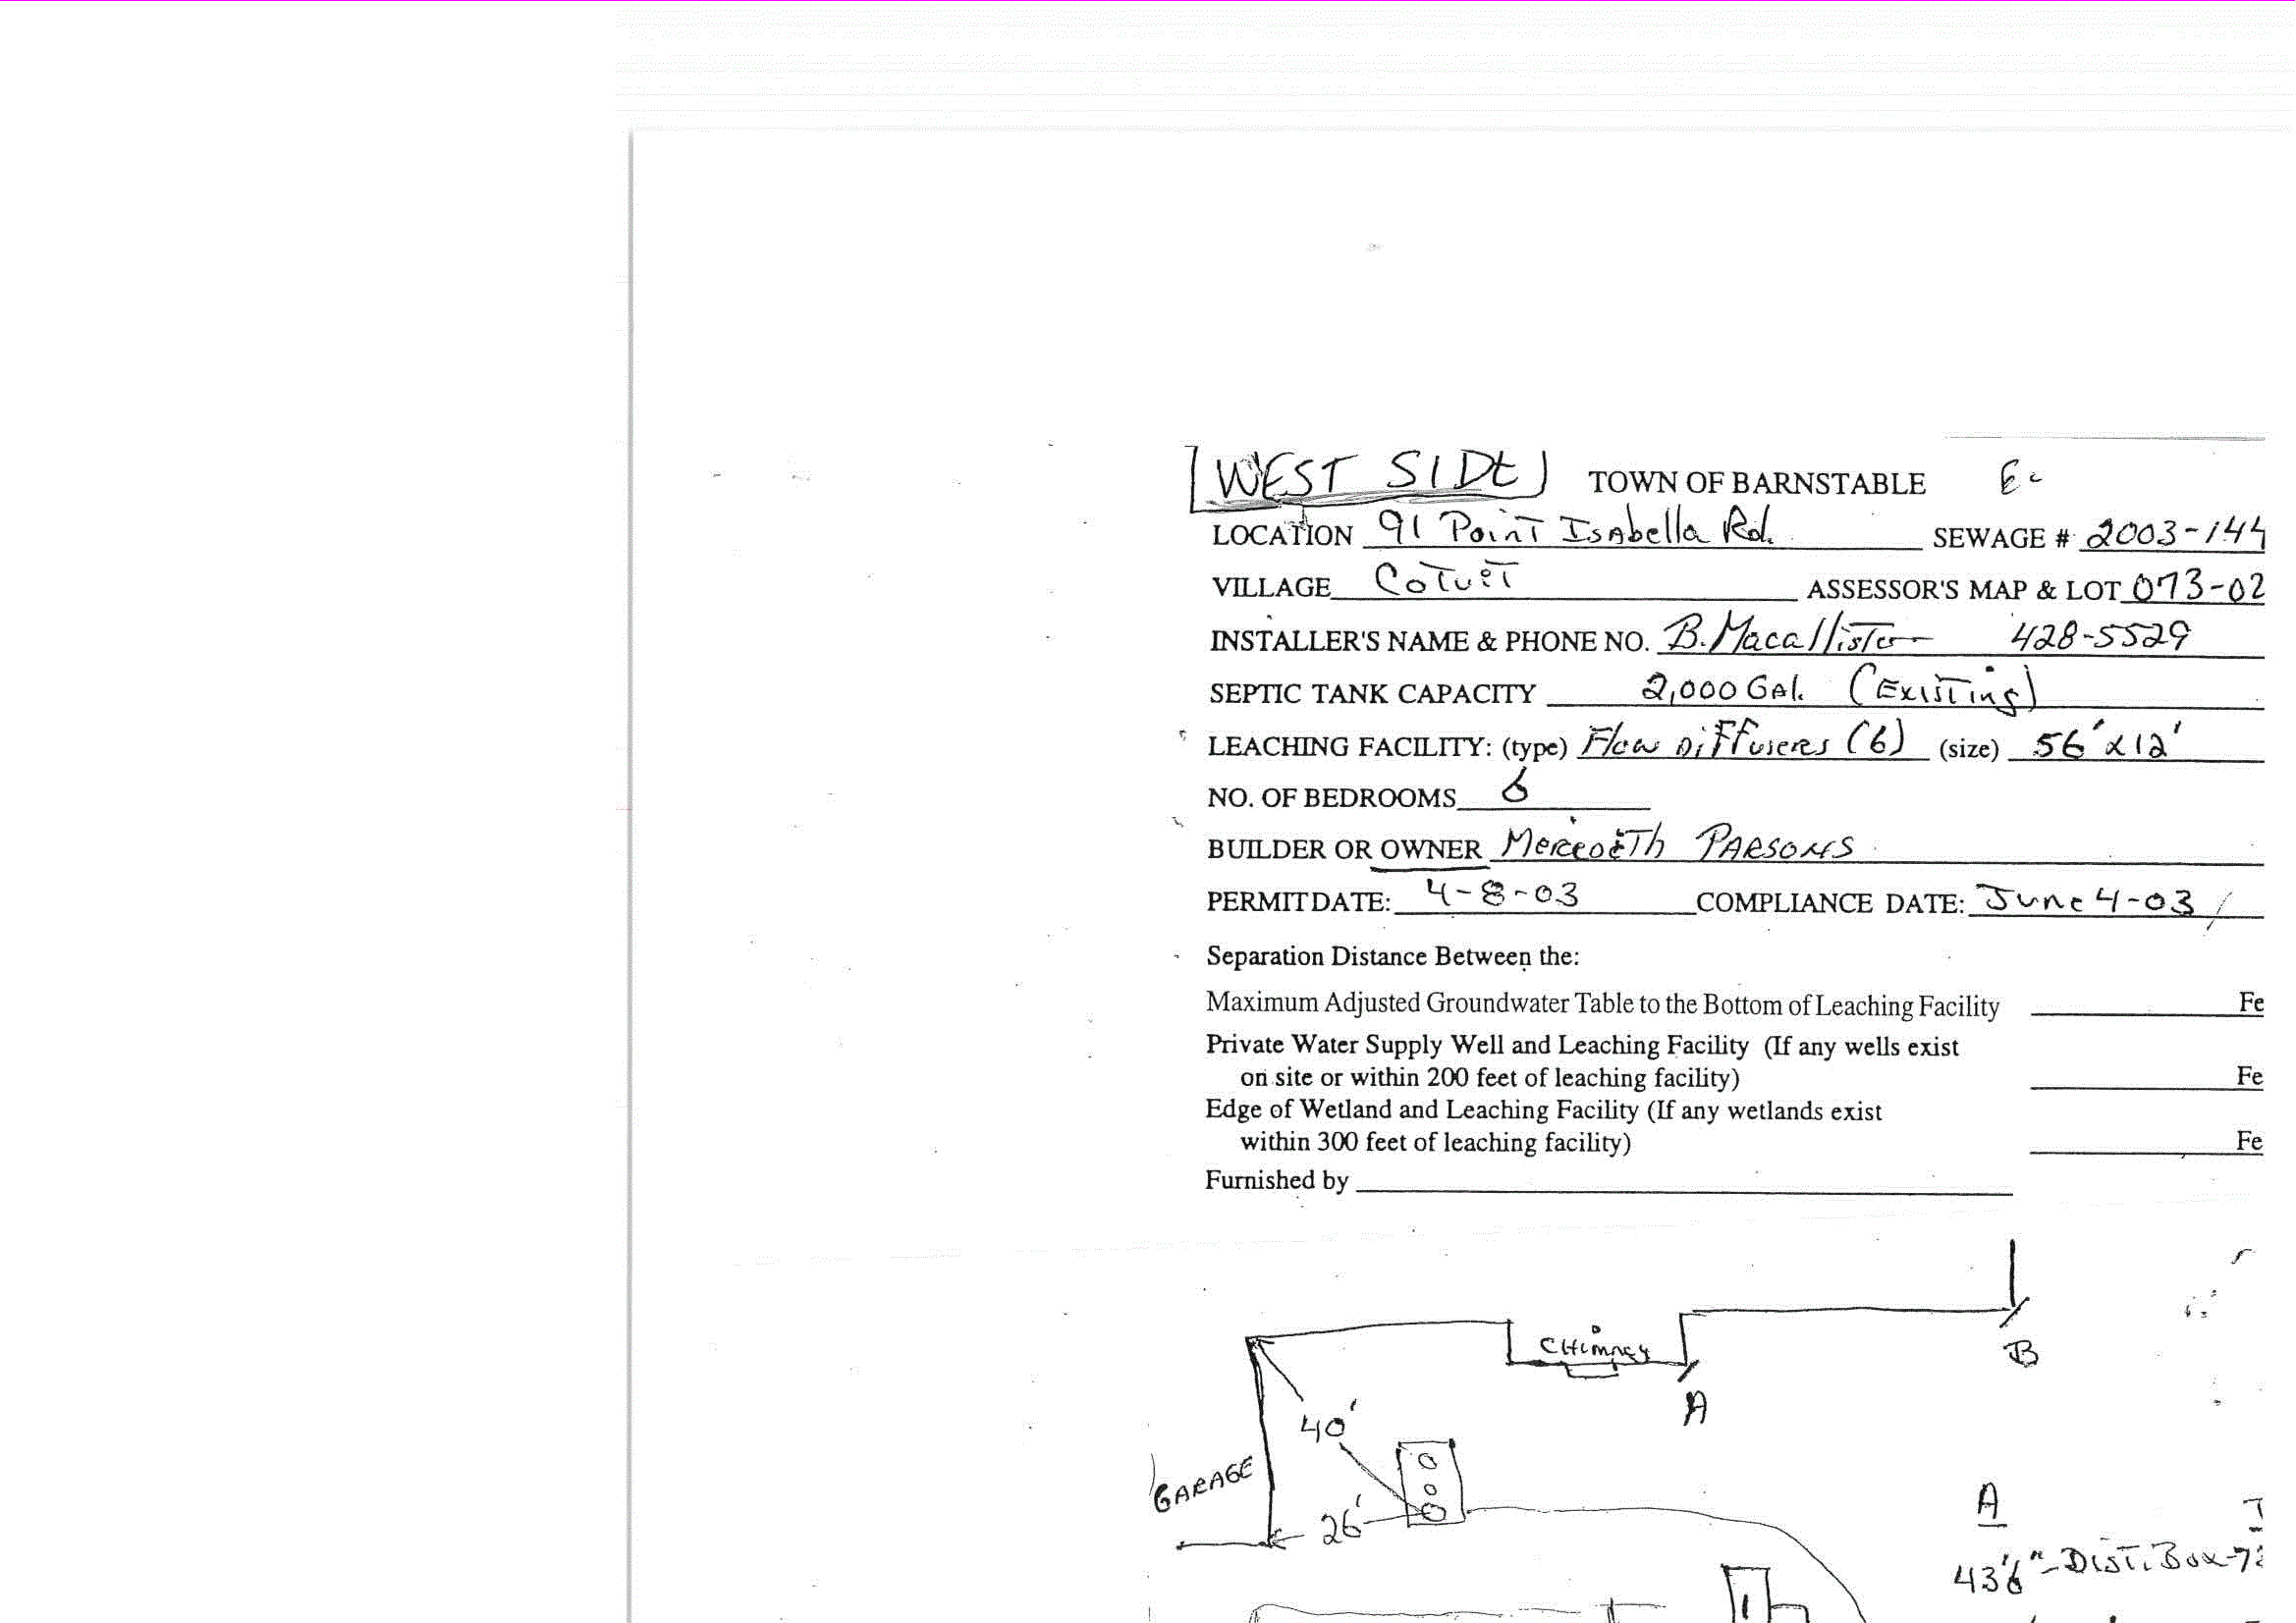 [WEST SIDE] TOWN OF BARNSTABLE
LOCATION 91 Point Isabella Rd. SEWAGE # 2003-144
VILLAGE Cotuit ASSESSOR'S MAP & LOT 073-02
INSTALLER'S NAME & PHONE NO. B. Macallister 428-5529
SEPTIC TANK CAPACITY 2,000 Gal. (Existing)
LEACHING FACILITY: (type) Flow Diffusers (6) (size) 56'x12'
NO. OF BEDROOMS 6
BUILDER OR OWNER Meredith PARSONS
PERMITDATE: 4-8-03 COMPLIANCE DATE: June 4-03
Separation Distance Between the:
Maximum Adjusted Groundwater Table to the Bottom of Leaching Facility Fe
Private Water Supply Well and Leaching Facility (If any wells exist
on site or within 200 feet of leaching facility) Fe
Edge of Wetland and Leaching Facility (If any wetlands exist
within 300 feet of leaching facility) Fe
Furnished by
CHimney
B
A
40'
GARAGE
26'
A
43'6"-Dist. Box-7
1